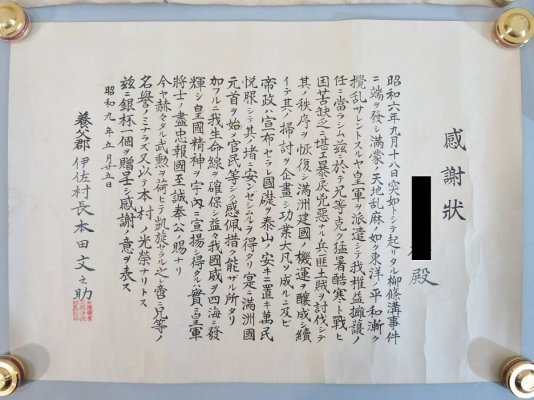 感謝狀
殿
昭和六年九月十八日突如トシテ起リタル柳條溝事件
ニ端ヲ發シ滿蒙ノ天地乱麻ノ如ク東洋ノ平和漸ク
攪乱サレントスルヤ皇軍ヲ派遣シテ我權益擁護ノ
任ニ當ラシム茲ニ於テ兄等克ク猛暑酷寒ト戰ヒ
困苦缺乏ニ堪エ暴戾兇惡ナル兵匪土賊ヲ討伐シテ
其ノ秩序ヲ恢復シ滿洲建國ノ機運ヲ釀成シ續
イテ其ノ掃討ヲ企畫シ功業大凡ソ成ルニ及ビ
帝政ハ宣布セラレ國礎ヲ泰山ノ安キニ置キ萬民
悦服シテ其ノ堵ニ安ンゼシムルヲ得タリ寔ニ滿洲國
元首ヲ始メ官民等シク感佩措ク能ハザル所ナリ
加フルニ我生命線ヲ確保シ益々我國威ヲ四海ニ發
輝シ皇國精神ヲ宇內ニ宣揚シ得タルハ實ニ皇軍
將士ノ盡忠報國至誠奉公ノ賜ナリ
今ヤ赫々タル武勲ヲ荷ヒテ凱旋サル之レ啻ニ兄等ノ
名譽ノミナラズ又以テ本村ノ光榮ナリトス
茲ニ銀杯一個ヲ贈呈シ感謝ノ意ヲ表ス
昭和九年五月廿五日
養父郡伊佐村長本田文之助